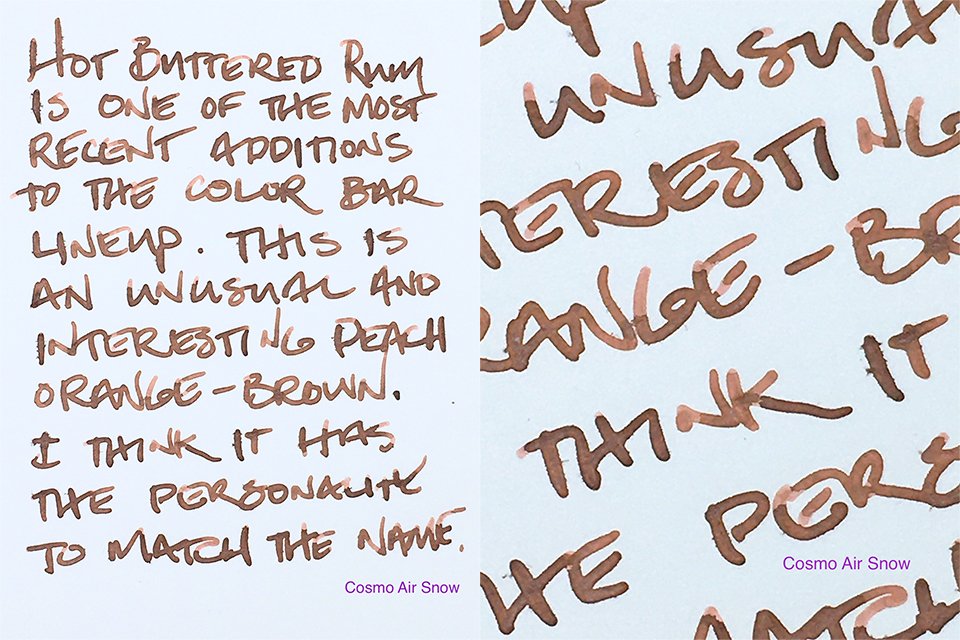 HOT BUTTERED RUM
IS ONE OF THE MOST
RECENT ADDITIONS
TO THE COLOR BAR
LINEUP. THIS IS
AN UNUSUAL AND
INTERESTING PEACH
ORANGE-BROWN.
I THINK IT HAS
THE PERSONALITY
TO MATCH THE NAME.
Cosmo Air Snow
UNUSUA
TERESTING
RANGE-BR
THINK IT
HE PERS
MATCH
Cosmo Air Snow